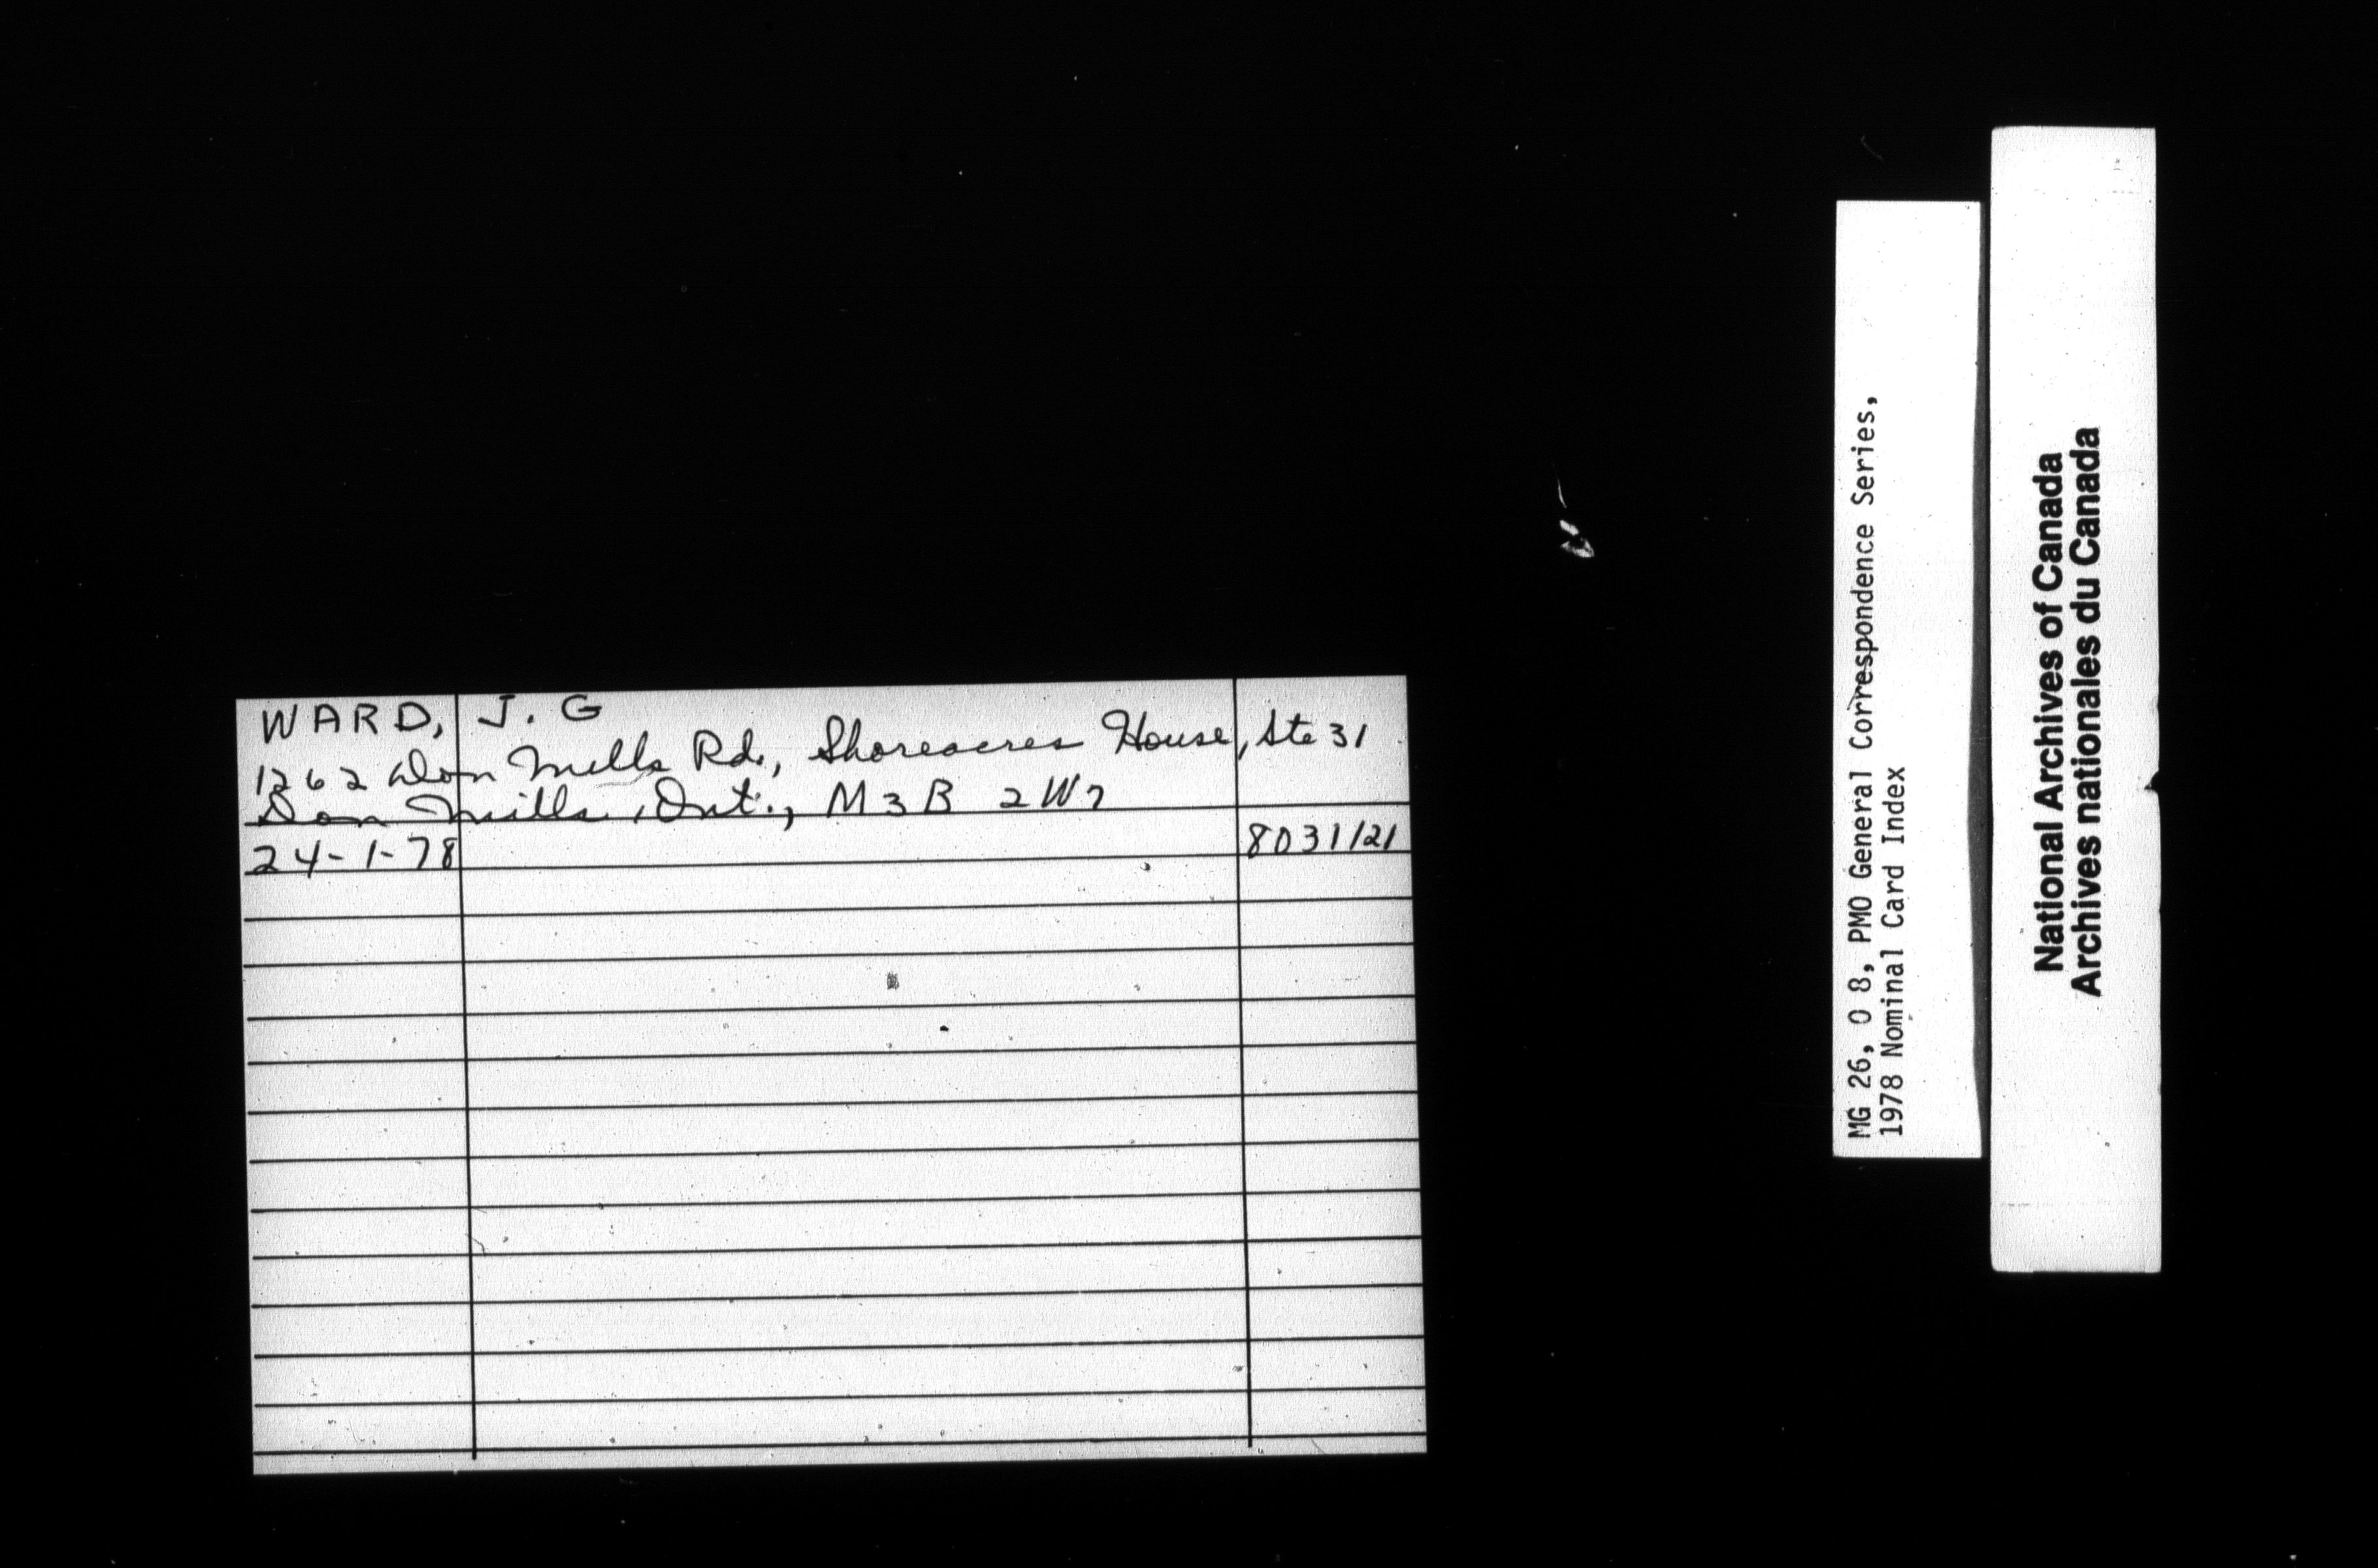 WARD, J. G
1262 Don Mills Rd., Shoreacres House, Ste 31
Don Mills, Ont., M3B 2W7
24-1-78 8031121
MG 26, O 8, PMO General Correspondence Series,
1978 Nominal Card Index
National Archives of Canada
Archives nationales du Canada